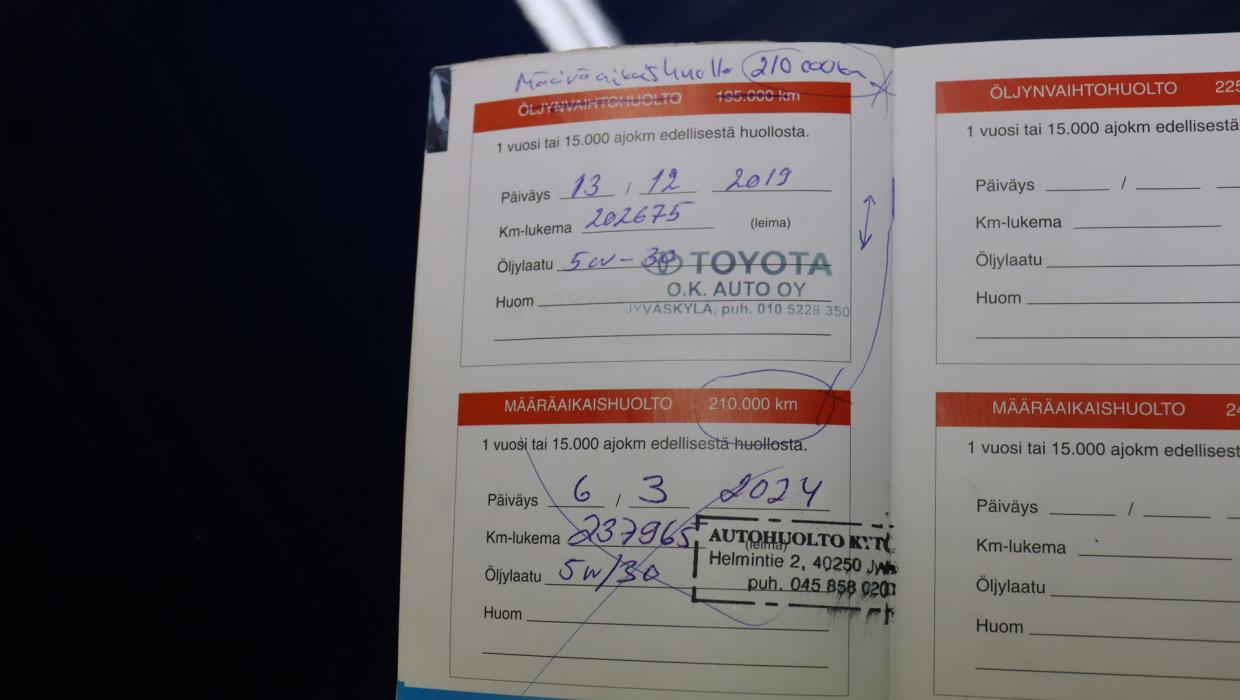 Määräaikaishuolto 210 000km
ÖLJYNVAIHTOHUOLTO 195.000 km
1 vuosi tai 15.000 ajokm edellisestä huollosta.
Päiväys 13 / 12 2019
Km-lukema 202675 (leima)
Öljylaatu 5W-30
TOYOTA
O.K. AUTO OY
Huom
JYVÄSKYLÄ, puh. 010 5228 350
MÄÄRÄAIKAISHUOLTO 210.000 km
1 vuosi tai 15.000 ajokm edellisestä huollosta.
Päiväys 6 / 3 2024
Km-lukema 237965 (leima)
AUTOHUOLTO
Helmintie 2, 40250
Öljylaatu 5W/30
puh. 045 858
Huom
ÖLJYNVAIHTOHUOLTO 225
1 vuosi tai 15.000 ajokm edellisestä
Päiväys /
Km-lukema
Öljylaatu
Huom
MÄÄRÄAIKAISHUOLTO
1 vuosi tai 15.000 ajokm edellisest
Päiväys /
Km-lukema
Öljylaatu
Huom